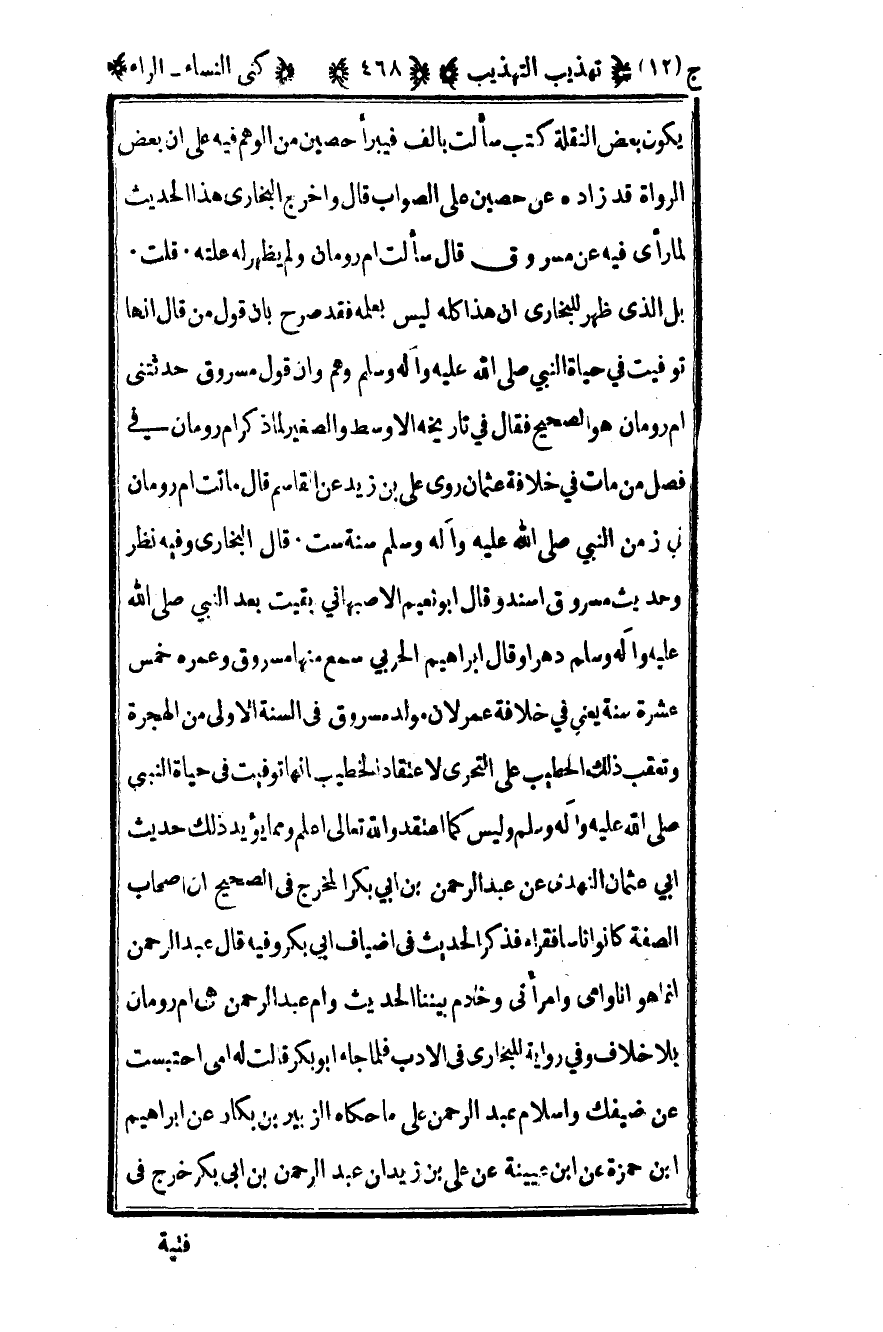 ج (١٢) تهذيب التهذيب ٤٦٨ كنى النساء - الراء
يكون بعض النقلة كتب سأ لت بالف فيبرأ حصين من الوهم فيه على ان بعض
الرواة قد زاده عن حصين على الصواب قال واخرج البخارى هذا الحديث
لما رأى فيه عن مسروق قال سأ لت ام رومان ولم يظهر له علته . قلت .
بل الذى ظهر للبخارى ان هذا كله ليس بعلمه فقد صرح بان قول من قال انها
توفيت في حياة النبي صلى الله عليه وآله وسلم وهم وان قول مسروق حدثتنى
ام رومان هو الصحيح فقال في تاريخه الاوسط والصغير لما ذكر ام رومان في
فصل من مات في خلافة عثمان روى على بن زيد عن القاسم قال ماتت ام رومان
في زمن النبي صلى الله عليه وآله وسلم سنة ست . قال البخارى وفيه نظر
وحديث مسروق اسند وقال ابو نعيم الاصبهاني بقيت بعد النبي صلى الله
عليه وآله وسلم دهرا وقال ابراهيم الحربي سمع منها مسروق وعمره خمس
عشرة سنة يعني في خلافة عمر لان مولد مسروق فى السنة الاولى من الهجرة
وتعقب ذلك الخطيب على التحرى لاعتقاد الخطيب انها توفيت فى حياة النبي
صلى الله عليه وآله وسلم وليس كما اعتقد والله تعالى اعلم ومما يؤيد ذلك حديث
ابي عثمان النهدى عن عبد الرحمن بن ابي بكر المخرج فى الصحيح ان اصحاب
الصفة كانوا ناسا فقراء فذكر الحديث فى اضياف ابي بكر وفيه قال عبد الرحمن
انما هو انا وامى وامرأتى وخادم بيننا الحديث وام عبد الرحمن هى ام رومان
بلا خلاف وفي رواية للبخارى فى الادب فلما جاء ابو بكر قالت له امى احتبست
عن ضيفك واسلام عبد الرحمن على ما حكاه الزبير بن بكار عن ابراهيم
ابن حمزة عن ابن عيينة عن على بن زيد ان عبد الرحمن بن ابى بكر خرج فى
فتية